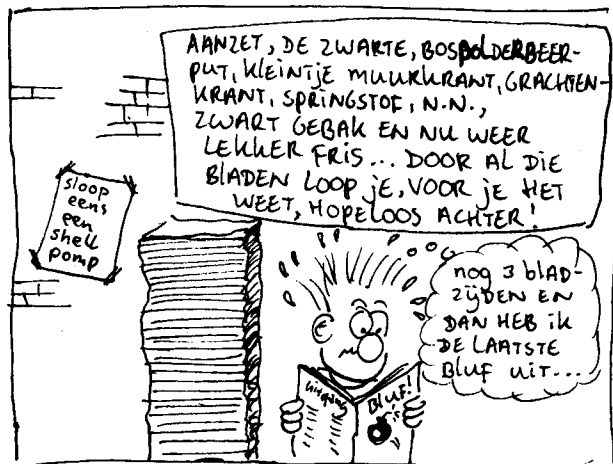 AANZET, DE ZWARTE, BOSPOLDERBEER-
PUT, KLEINTJE MUURKRANT, GRACHTEN-
KRANT, SPRINGSTOF, N.N.,
ZWART GEBAK EN NU WEER
LEKKER FRIS... DOOR AL DIE
BLADEN LOOP JE, VOOR JE HET
WEET, HOPELOOS ACHTER!
sloop
eens
een
shell
pomp
nog 3 BLAD-
ZIJDEN EN
DAN HEB IK
DE LAATSTE
BLUF UIT...
BLUF!